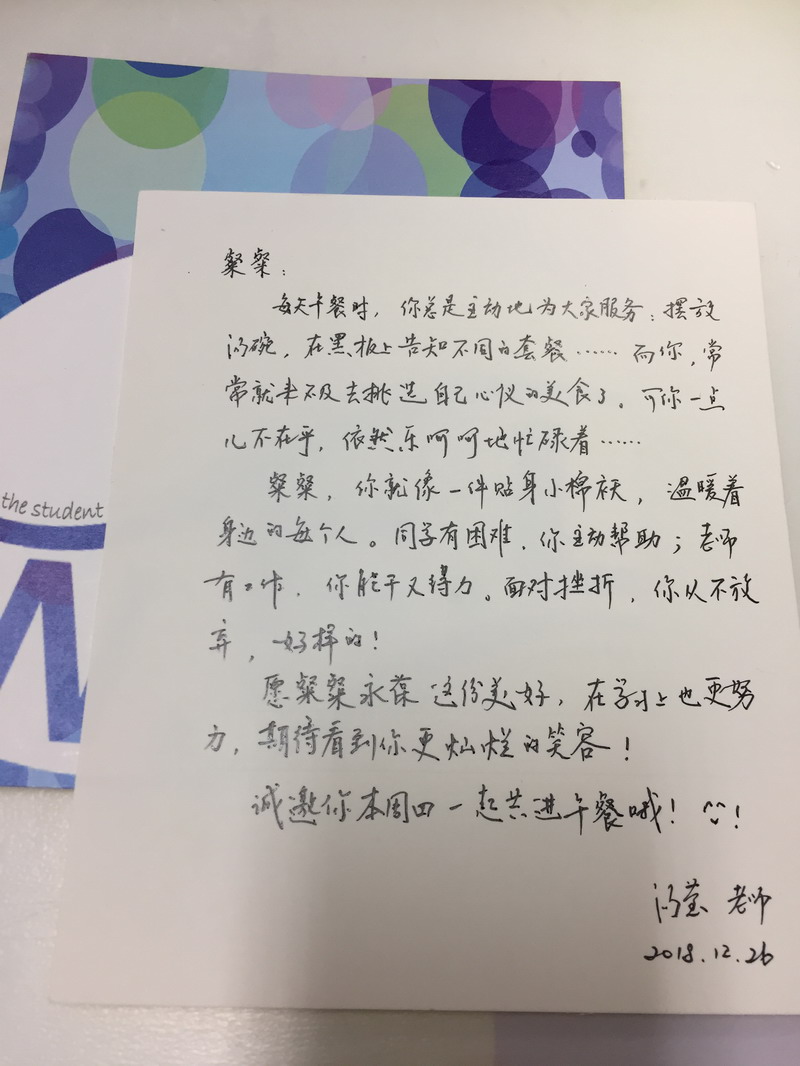 粲粲：
每天午餐时，你总是主动地为大家服务：摆放
汤碗，在黑板上告知不同的套餐……而你，常
常就来不及去挑选自己心仪的美食了。可你一点
儿不在乎，依然乐呵呵地忙碌着……
粲粲，你就像一件贴身小棉袄，温暖着
身边的每个人。同学有困难，你主动帮助；老师
有工作，你能干又得力。面对挫折，你从不放
弃，好样的！
愿粲粲永葆这份美好，在学习上也更努
力，期待看到你更灿烂的笑容！
诚邀你本周四一起共进午餐哦！^^！
汤莹 老师
2018.12.26
the student
W